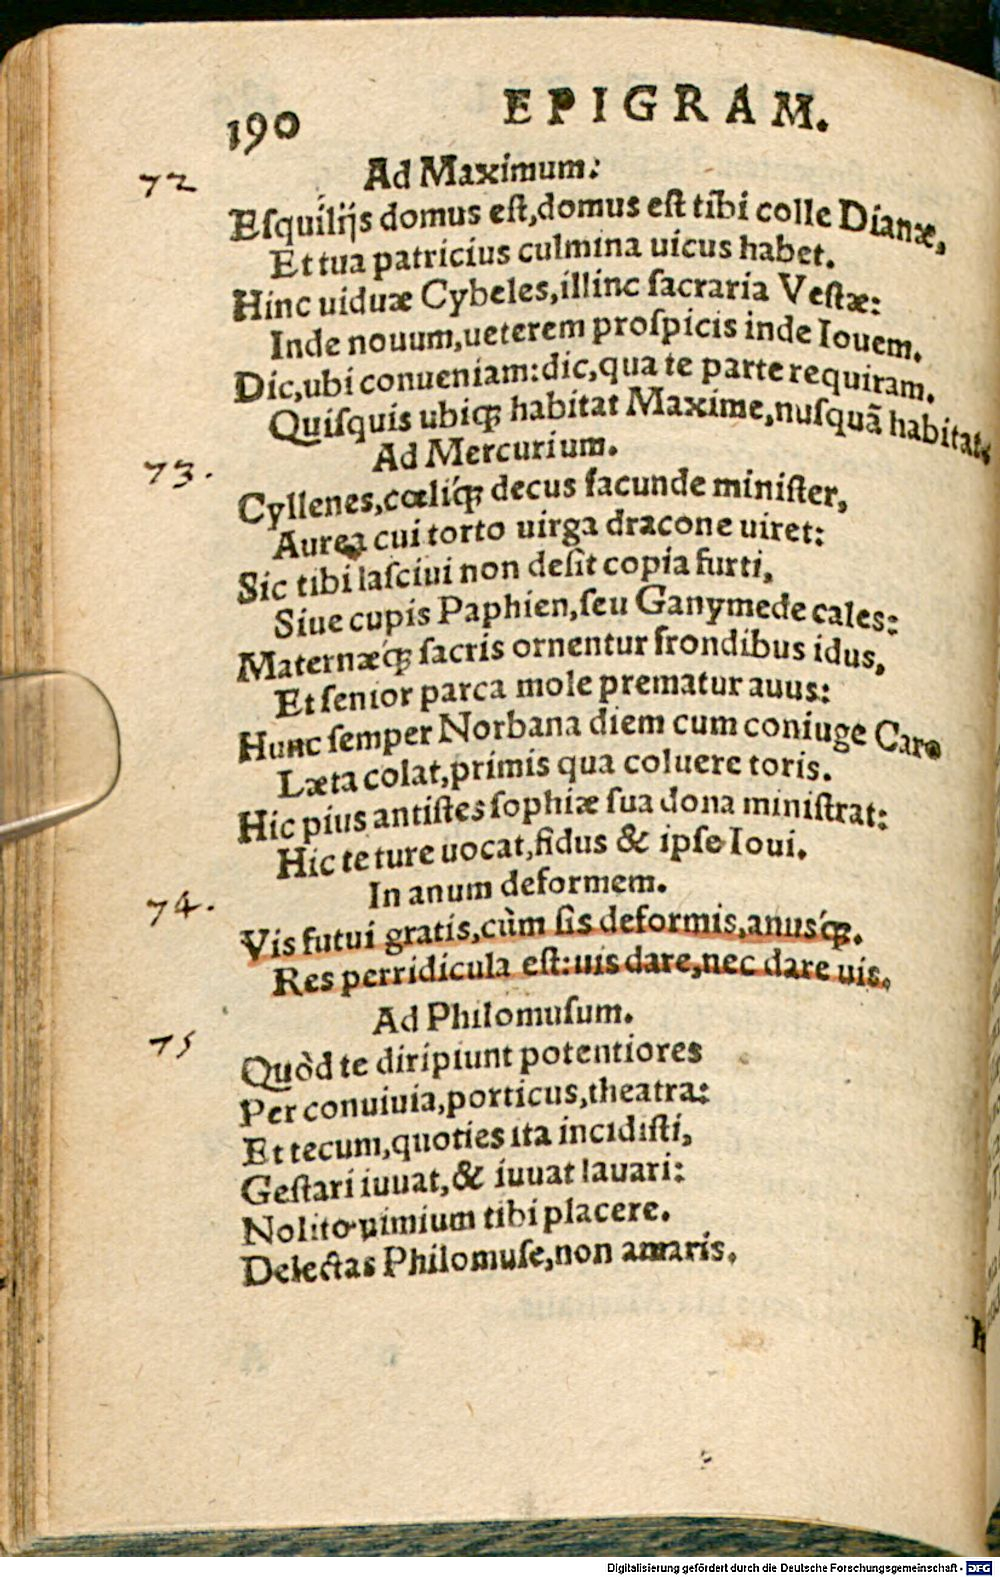 190
EPIGRAM.
72
Ad Maximum:
Eſquilijs domus eſt, domus eſt tibi colle Dianæ,
Et tua patricius culmina uicus habet.
Hinc uiduæ Cybeles, illinc ſacraria Veſtæ:
Inde nouum, ueterem proſpicis inde Iouem.
Dic, ubi conueniam: dic, qua te parte requiram.
Quiſquis ubiqꝫ habitat Maxime, nuſquã habitat.
73.
Ad Mercurium.
Cyllenes, cœliq́ꝫ decus facunde miniſter,
Aurea cui torto uirga dracone uiret:
Sic tibi laſciui non deſit copia furti,
Siue cupis Paphien, ſeu Ganymede cales:
Maternæq́ꝫ ſacris ornentur frondibus idus,
Et ſenior parca mole prematur auus:
Hunc ſemper Norbana diem cum coniuge Caro
Læta colat, primis qua coluere toris.
Hic pius antiſtes ſophiæ ſua dona miniſtrat:
Hic te ture uocat, fidus & ipſe Ioui.
74.
In anum deformem.
Vis futui gratis, cùm ſis deformis, anusq́ꝫ.
Res perridicula eſt: uis dare, nec dare uis.
75
Ad Philomuſum.
Quòd te diripiunt potentiores
Per conuiuia, porticus, theatra:
Et tecum, quoties ita incidiſti,
Geſtari iuuat, & iuuat lauari:
Nolito nimium tibi placere.
Delectas Philomuſe, non amaris.
Digitalisierung gefördert durch die Deutsche Forschungsgemeinschaft - DFG